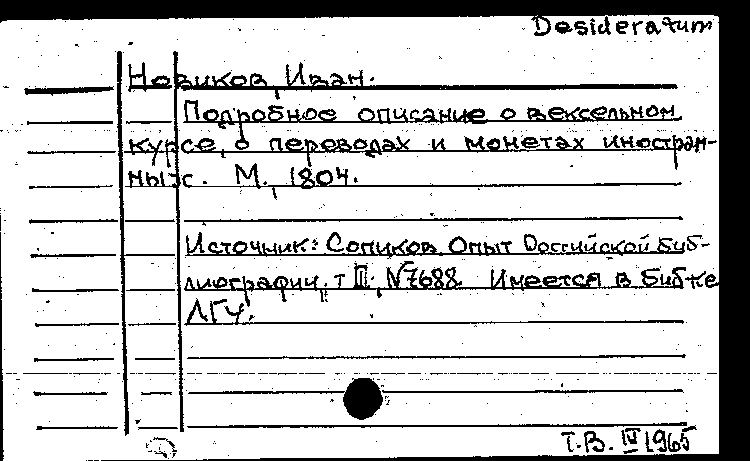 Desideratum
Новиков, Иван.
Подробное описание о вексельном
курсе, о переводах и монетах иностран-
ных. М., 1804.
Источник: Сопиков. Опыт Российской биб-
лиографии, т III, №7688 Имеется в биб-ке
ЛГУ.
Т.В. IV 1965